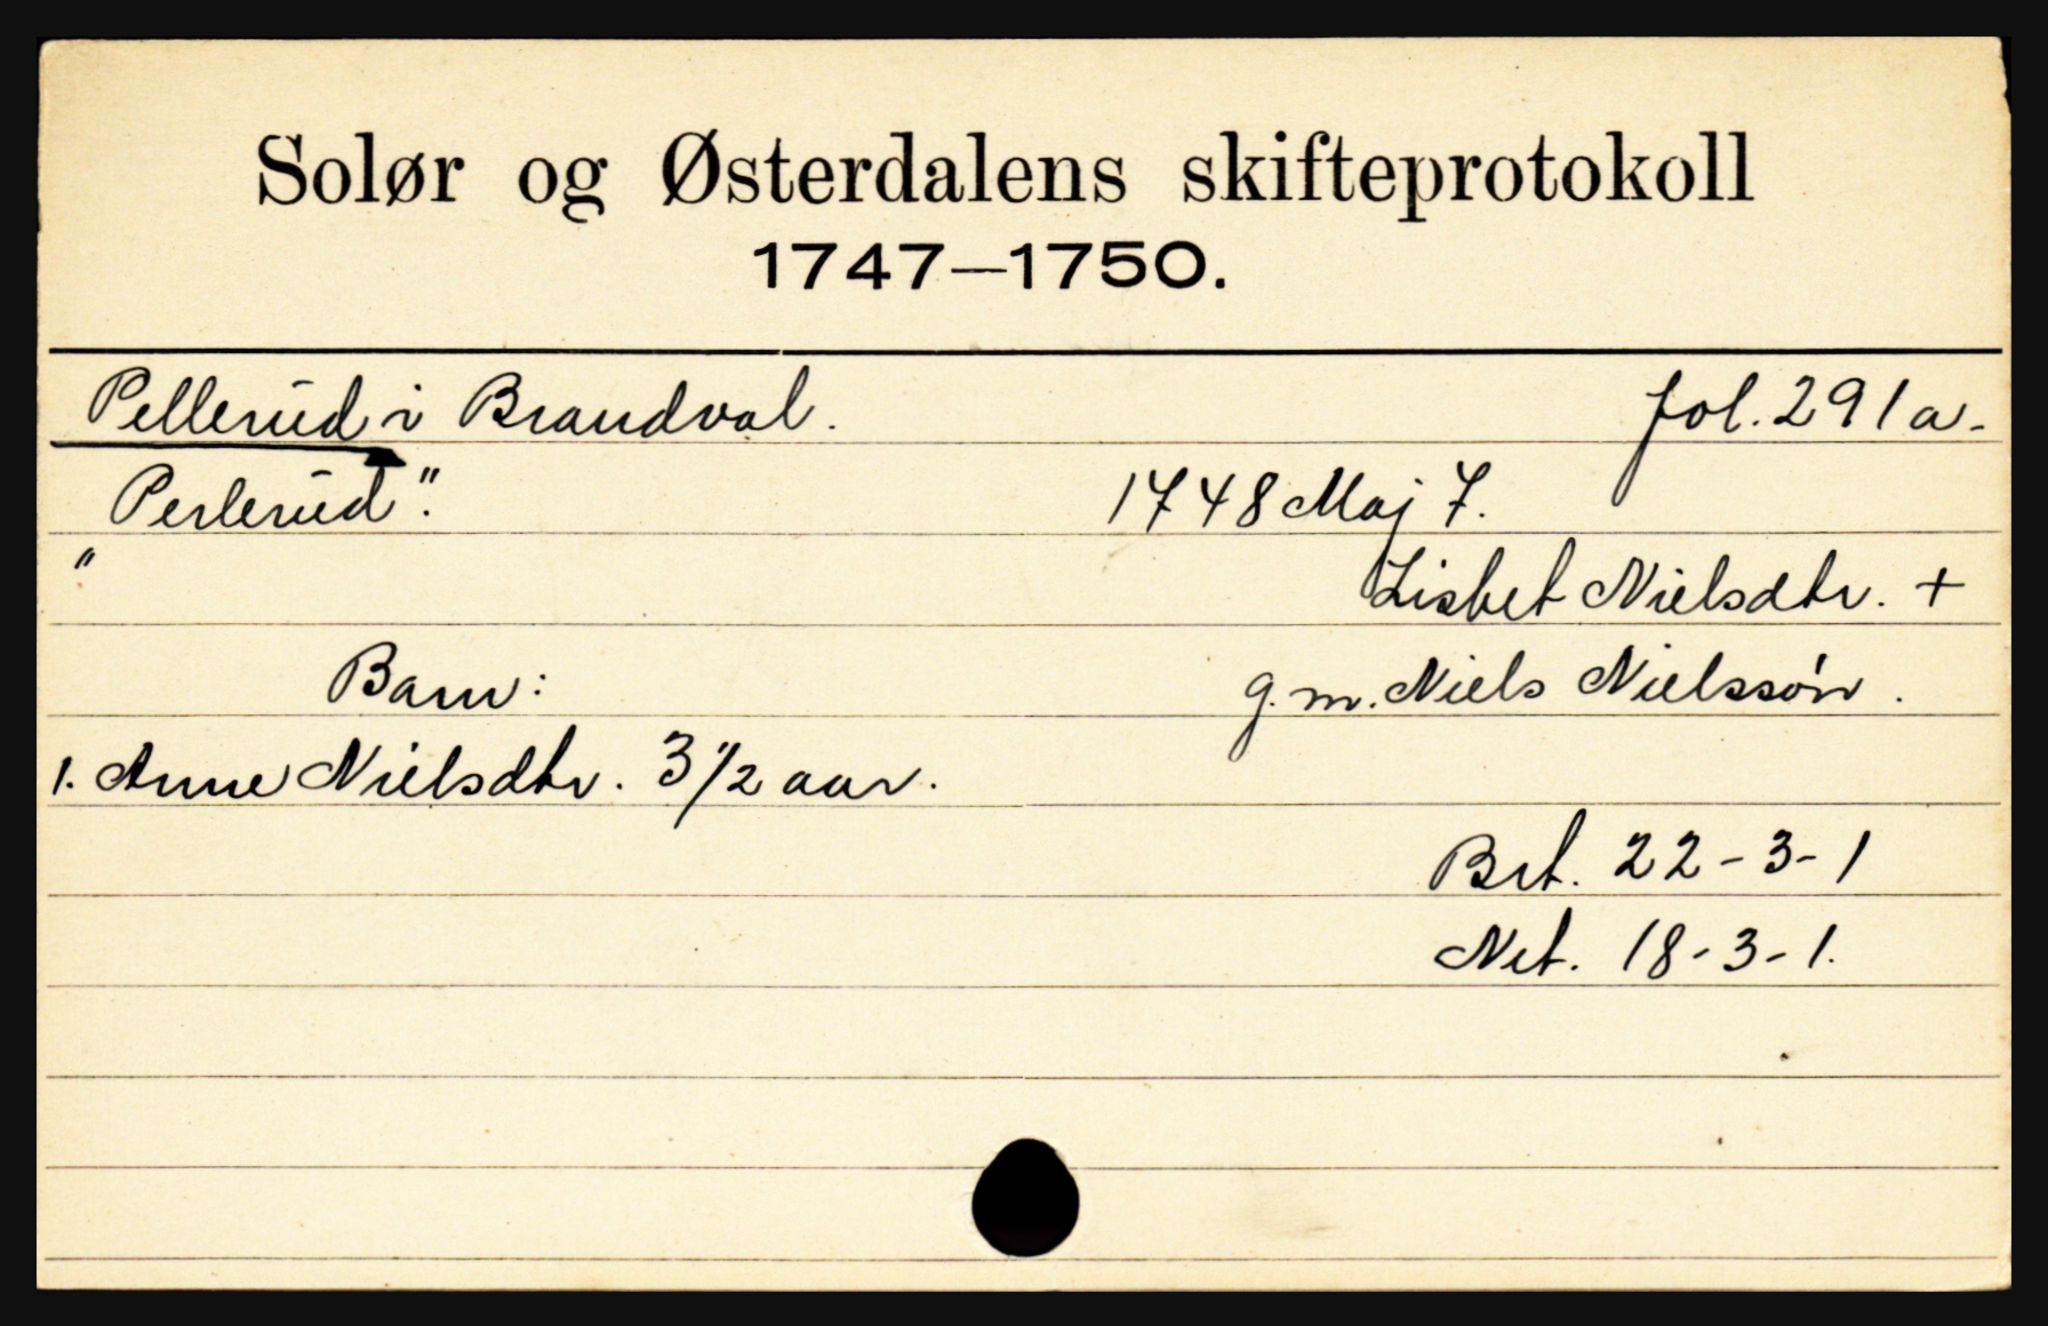 Solør og Østerdalens skifteprotokoll
1747—1750.
Pellerud i Brandval. fol. 291a.
"Perlerud". 1748 Maj 7.
Lisbet Nielsdtr. +
Barn: g.m. Niels Nielssøn.
1. Anne Nielsdtr. 3 1/2 aar.
Brt. 22-3-1
Net. 18-3-1.